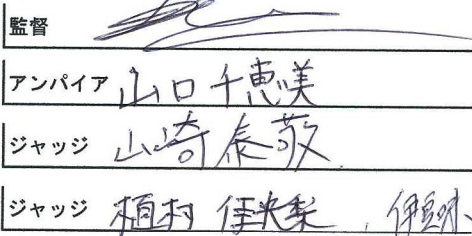 監督
アンパイア 山口千恵美
ジャッジ 山崎泰敬
ジャッジ 植村 佳央梨